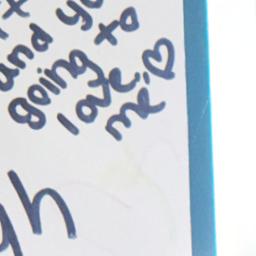 and yo
going to
love
me! ♡
gh